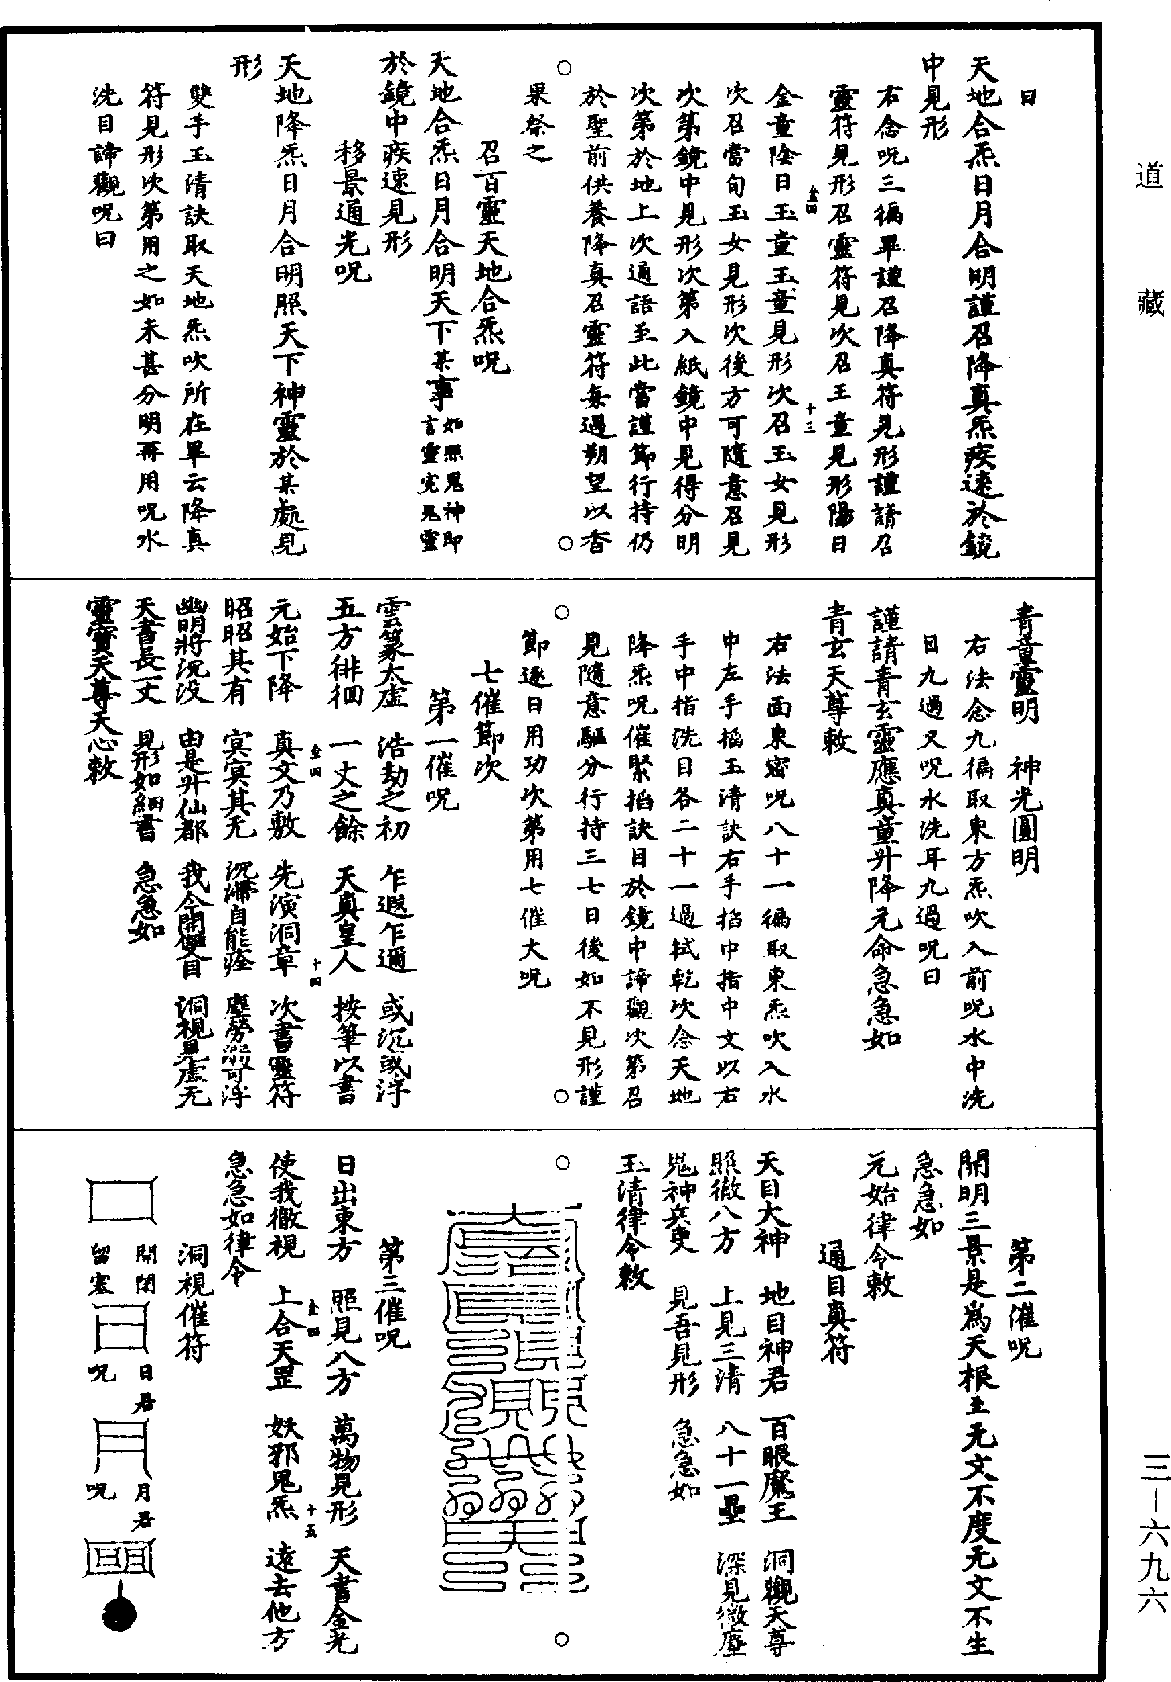 道藏
三—六九六
曰
天地合炁日月合明謹召降真炁疾速於鏡
中見形
右念呪三徧畢謹召降真符見形謹請召
靈符見形召靈符見次召王童見形陽日
金童陰日玉童玉童見形次召玉女見形
次召當旬玉女見形次後方可隨意召見
次第鏡中見形次第入紙鏡中見得分明
次第於地上次通語至此當謹節行持仍
於聖前供養降真召靈符每遇朔望以香
果祭之
召百靈天地合炁呪
天地合炁日月合明天下某事如照鬼神即
言靈宪鬼靈
於鏡中疾速見形
移景通光呪
天地降炁日月合明照天下神靈於某處見
形
雙手玉清訣取天地炁吹所在畢云降真
符見形次第用之如未甚分明再用呪水
洗目諦觀呪曰
青童靈明　神光圓明
右法念九徧取東方炁吹入前呪水中洗
目九過又呪水洗耳九過呪曰
謹請青玄靈應真童升降元命急急如
青玄天尊敕
右法面東密呪八十一徧取東炁吹入水
中左手掐玉清訣右手掐中指中文以右
手中指洗目各二十一過拭乾次念天地
降炁呪催緊掐訣目於鏡中諦觀次第召
見隨意驅分行持三七日後如不見形謹
節逐日用功次第用七催大呪
七催節次
第一催呪
雲篆太虛　浩劫之初　乍遐乍邇　或沉或浮
五方徘徊　一丈之餘　天真皇人　按筆以書
元始下降　真文乃敷　先演洞章　次書靈符
昭昭其有　冥冥其无　沉痾自能痊　塵勞溺可浮
幽明將沉没　由是升仙都　我今開雙目　洞視見虛无
天書長一丈　見形如細書　急急如
靈寶天尊天心敕
第二催呪
開明三景是為天根至无文不度无文不生
急急如
元始律令敕
通目真符
天目大神　地目神君　百眼魔王　洞觀天尊
照徹八方　上見三清　八十一壘　深見微塵
鬼神兵吏　見吾見形　急急如
玉清律令敕
第三催呪
日出東方　照見八方　萬物見形　天書金光
使我徹視　上合天罡　妖邪鬼炁　遠去他方
急急如律令
洞視催符
開閉
留塞
日君
呪
月君
呪
金四
十三
金四
十四
金四
十五